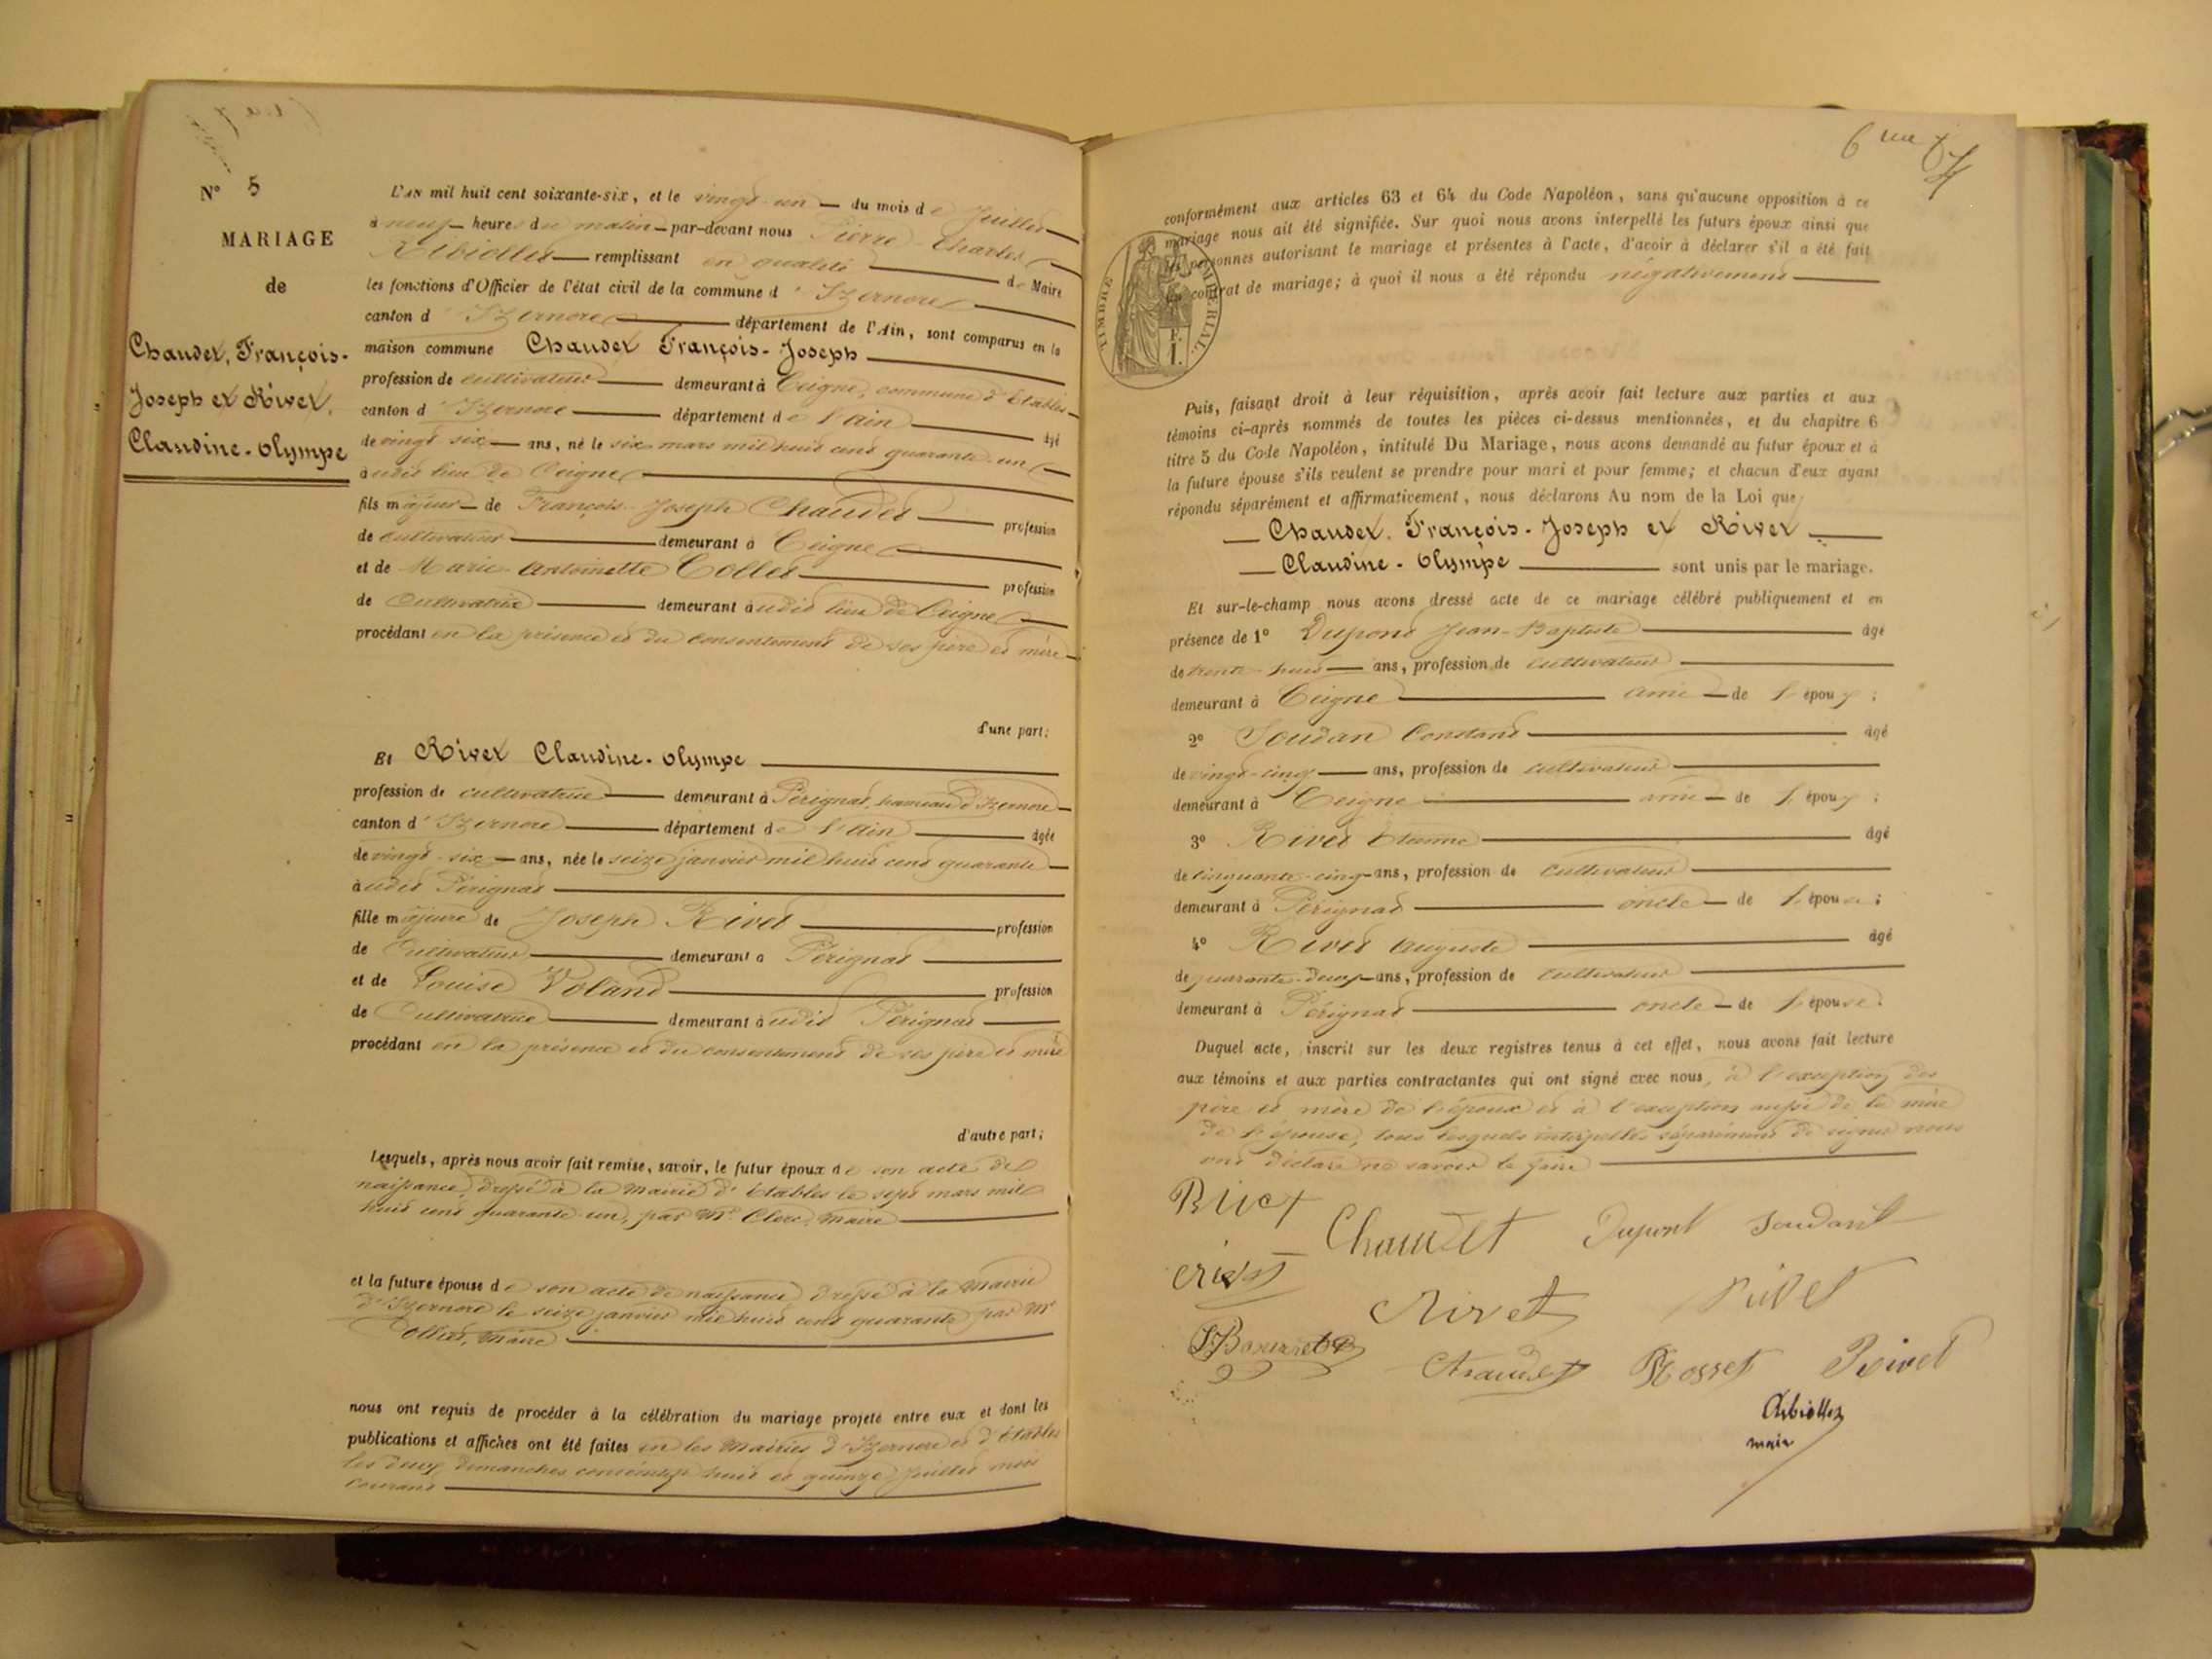 N° 5
MARIAGE
de
Chaudet, François-
Joseph et Rivet,
Claudine-Olympe
L'AN mil huit cent soixante-six, et le vingt-un du mois de Juillet
à neuf heures du matin par-devant nous Pierre-Charles
Ribiollet remplissant en qualité de Maire
les fonctions d'Officier de l'état civil de la commune d'Izernore
canton d'Izernore département de l'Ain, sont comparus en la
maison commune Chaudet François-Joseph
profession de cultivateur demeurant à Ceigne, commune d'Etables
canton d'Izernore département de l'Ain âgé
de vingt six ans, né le six mars mil huit cent quarante-un
audit lieu de Ceigne
fils majeur de François-Joseph Chaudet profession
de cultivateur demeurant à Ceigne
et de Marie-Antoinette Collet profession
de Cultivatrice demeurant audit lieu de Ceigne
procédant en la présence et du consentement de ses père et mère
d'une part;
Et Rivet Claudine-Olympe
profession de cultivatrice demeurant à Pérignat, hameau d'Izernore
canton d'Izernore département de l'Ain âgée
de vingt-six ans, née le seize janvier mil huit cent quarante
audit Pérignat
fille majeure de Joseph Rivet profession
de Cultivateur demeurant à Pérignat
et de Louise Voland profession
de Cultivatrice demeurant audit Pérignat
procédant en la présence et du consentement de ses père et mère
d'autre part;
Lesquels, après nous avoir fait remise, savoir, le futur époux de son acte de
naissance, dressé à la Mairie d'Etables le sept mars mil
huit cent quarante-un, par Mr. Clerc, Maire
et la future épouse de son acte de naissance dressé à la Mairie
d'Izernore le seize janvier mil huit cent quarante par Mr
Maire
nous ont requis de procéder à la célébration du mariage projeté entre eux et dont les
publications et affiches ont été faites en les Mairies d'Izernore et d'Etables
les deux dimanches consécutifs huit et quinze Juillet mois
courant
6me
conformément aux articles 63 et 64 du Code Napoléon, sans qu'aucune opposition à ce
mariage nous ait été signifiée. Sur quoi nous avons interpellé les futurs époux ainsi que
les personnes autorisant le mariage et présentes à l'acte, d'avoir à déclarer s'il a été fait
un contrat de mariage; à quoi il nous a été répondu négativement
TIMBRE IMPÉRIAL
E.
I.
Puis, faisant droit à leur réquisition, après avoir fait lecture aux parties et aux
témoins ci-après nommés de toutes les pièces ci-dessus mentionnées, et du chapitre 6
titre 5 du Code Napoléon, intitulé Du Mariage, nous avons demandé au futur époux et à
la future épouse s'ils veulent se prendre pour mari et pour femme; et chacun d'eux ayant
répondu séparément et affirmativement, nous déclarons Au nom de la Loi que
Chaudet, François-Joseph et Rivet
Claudine-Olympe sont unis par le mariage.
Et sur-le-champ nous avons dressé acte de ce mariage célébré publiquement et en
présence de 1° Dupont Jean-Baptiste âgé
de trente-huit ans, profession de cultivateur
demeurant à Ceigne ami de l'époux;
2° Soudan Constant âgé
de vingt-cinq ans, profession de cultivateur
demeurant à Ceigne ami de l'époux;
3° Rivet Etienne âgé
de cinquante-cinq ans, profession de Cultivateur
demeurant à Pérignat oncle de l'épouse;
4° Rivet Auguste âgé
de quarante-deux ans, profession de cultivateur
demeurant à Pérignat oncle de l'épouse.
Duquel acte, inscrit sur les deux registres tenus à cet effet, nous avons fait lecture
aux témoins et aux parties contractantes qui ont signé avec nous, à l'exception des
père et mère de l'époux et à l'exception aussi de la mère
de l'épouse, tous lesquels interpellés séparément de signer nous
ont déclaré ne savoir le faire
Rivet Chaudet Dupont Soudant
Rivet Rivet
Chaudet Rosset Rivet
Ribiollet
maire